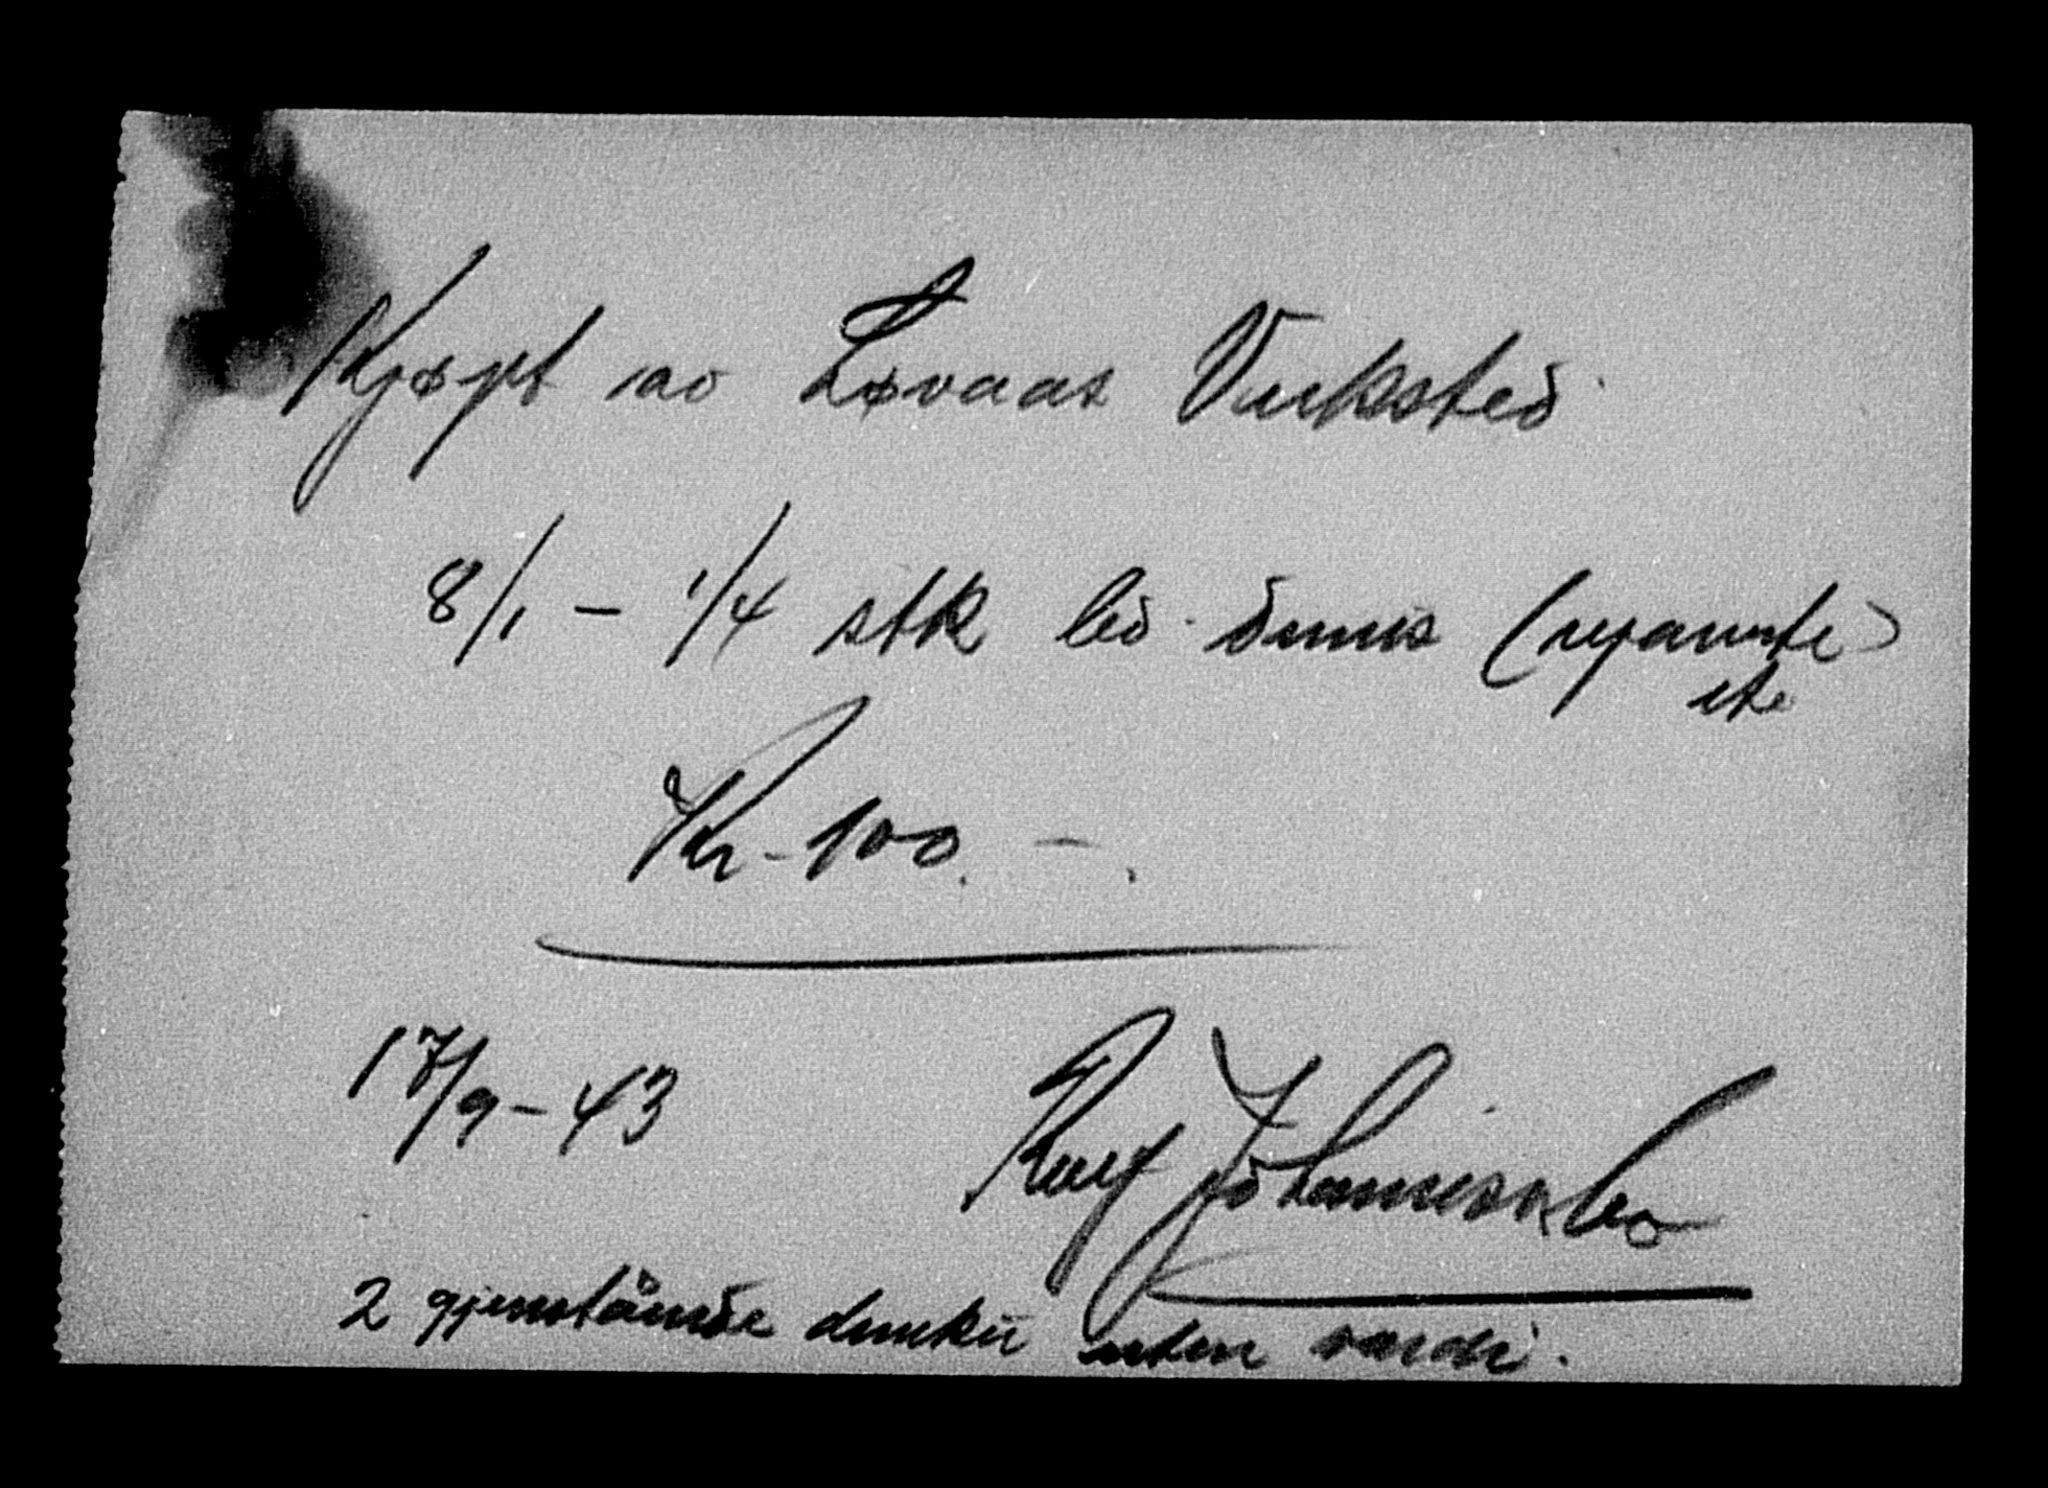 Kjøpt av Løvaas Verksted.
8/1 – 1/4 stk led. dunks (ustanste)
etc
Kr. 100. –.
17/9 – 43 Rolf Johannessen
2 gjenstående dunker uten verdi.